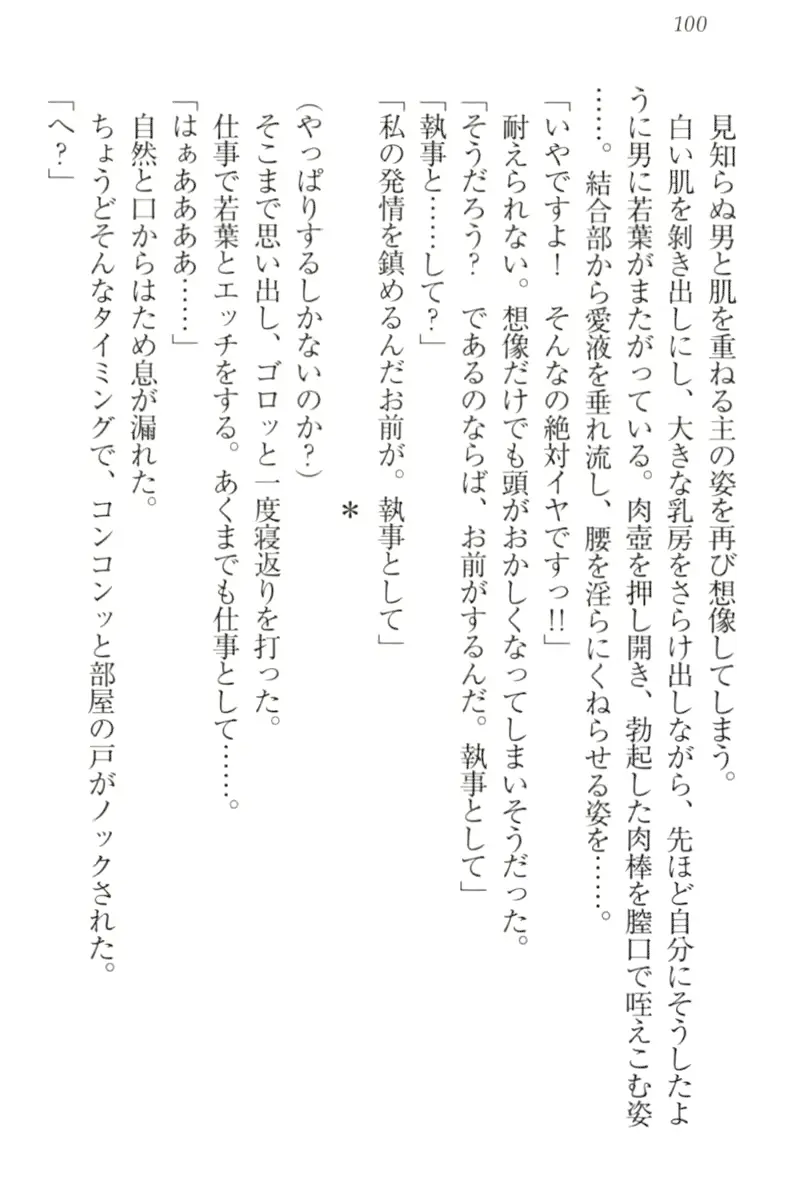 100
見知らぬ男と肌を重ねる主の姿を再び想像してしまう。
白い肌を剥き出しにし、大きな乳房をさらけ出しながら、先ほど自分にそうしたよ
うに男に若葉がまたがっている。肉壺を押し開き、勃起した肉棒を膣口で咥えこむ姿
……。結合部から愛液を垂れ流し、腰を淫らにくねらせる姿を……。
「いやですよ！　そんなの絶対イヤですっ!!」
耐えられない。想像だけでも頭がおかしくなってしまいそうだった。
「そうだろう？　であるのならば、お前がするんだ。執事として」
「執事と……して？」
「私の発情を鎮めるんだお前が。執事として」
＊
(やっぱりするしかないのか？)
そこまで思い出し、ゴロッと一度寝返りを打った。
仕事で若葉とエッチをする。あくまでも仕事として……。
「はぁああああ……」
自然と口からはため息が漏れた。
ちょうどそんなタイミングで、コンコンッと部屋の戸がノックされた。
「へ？」